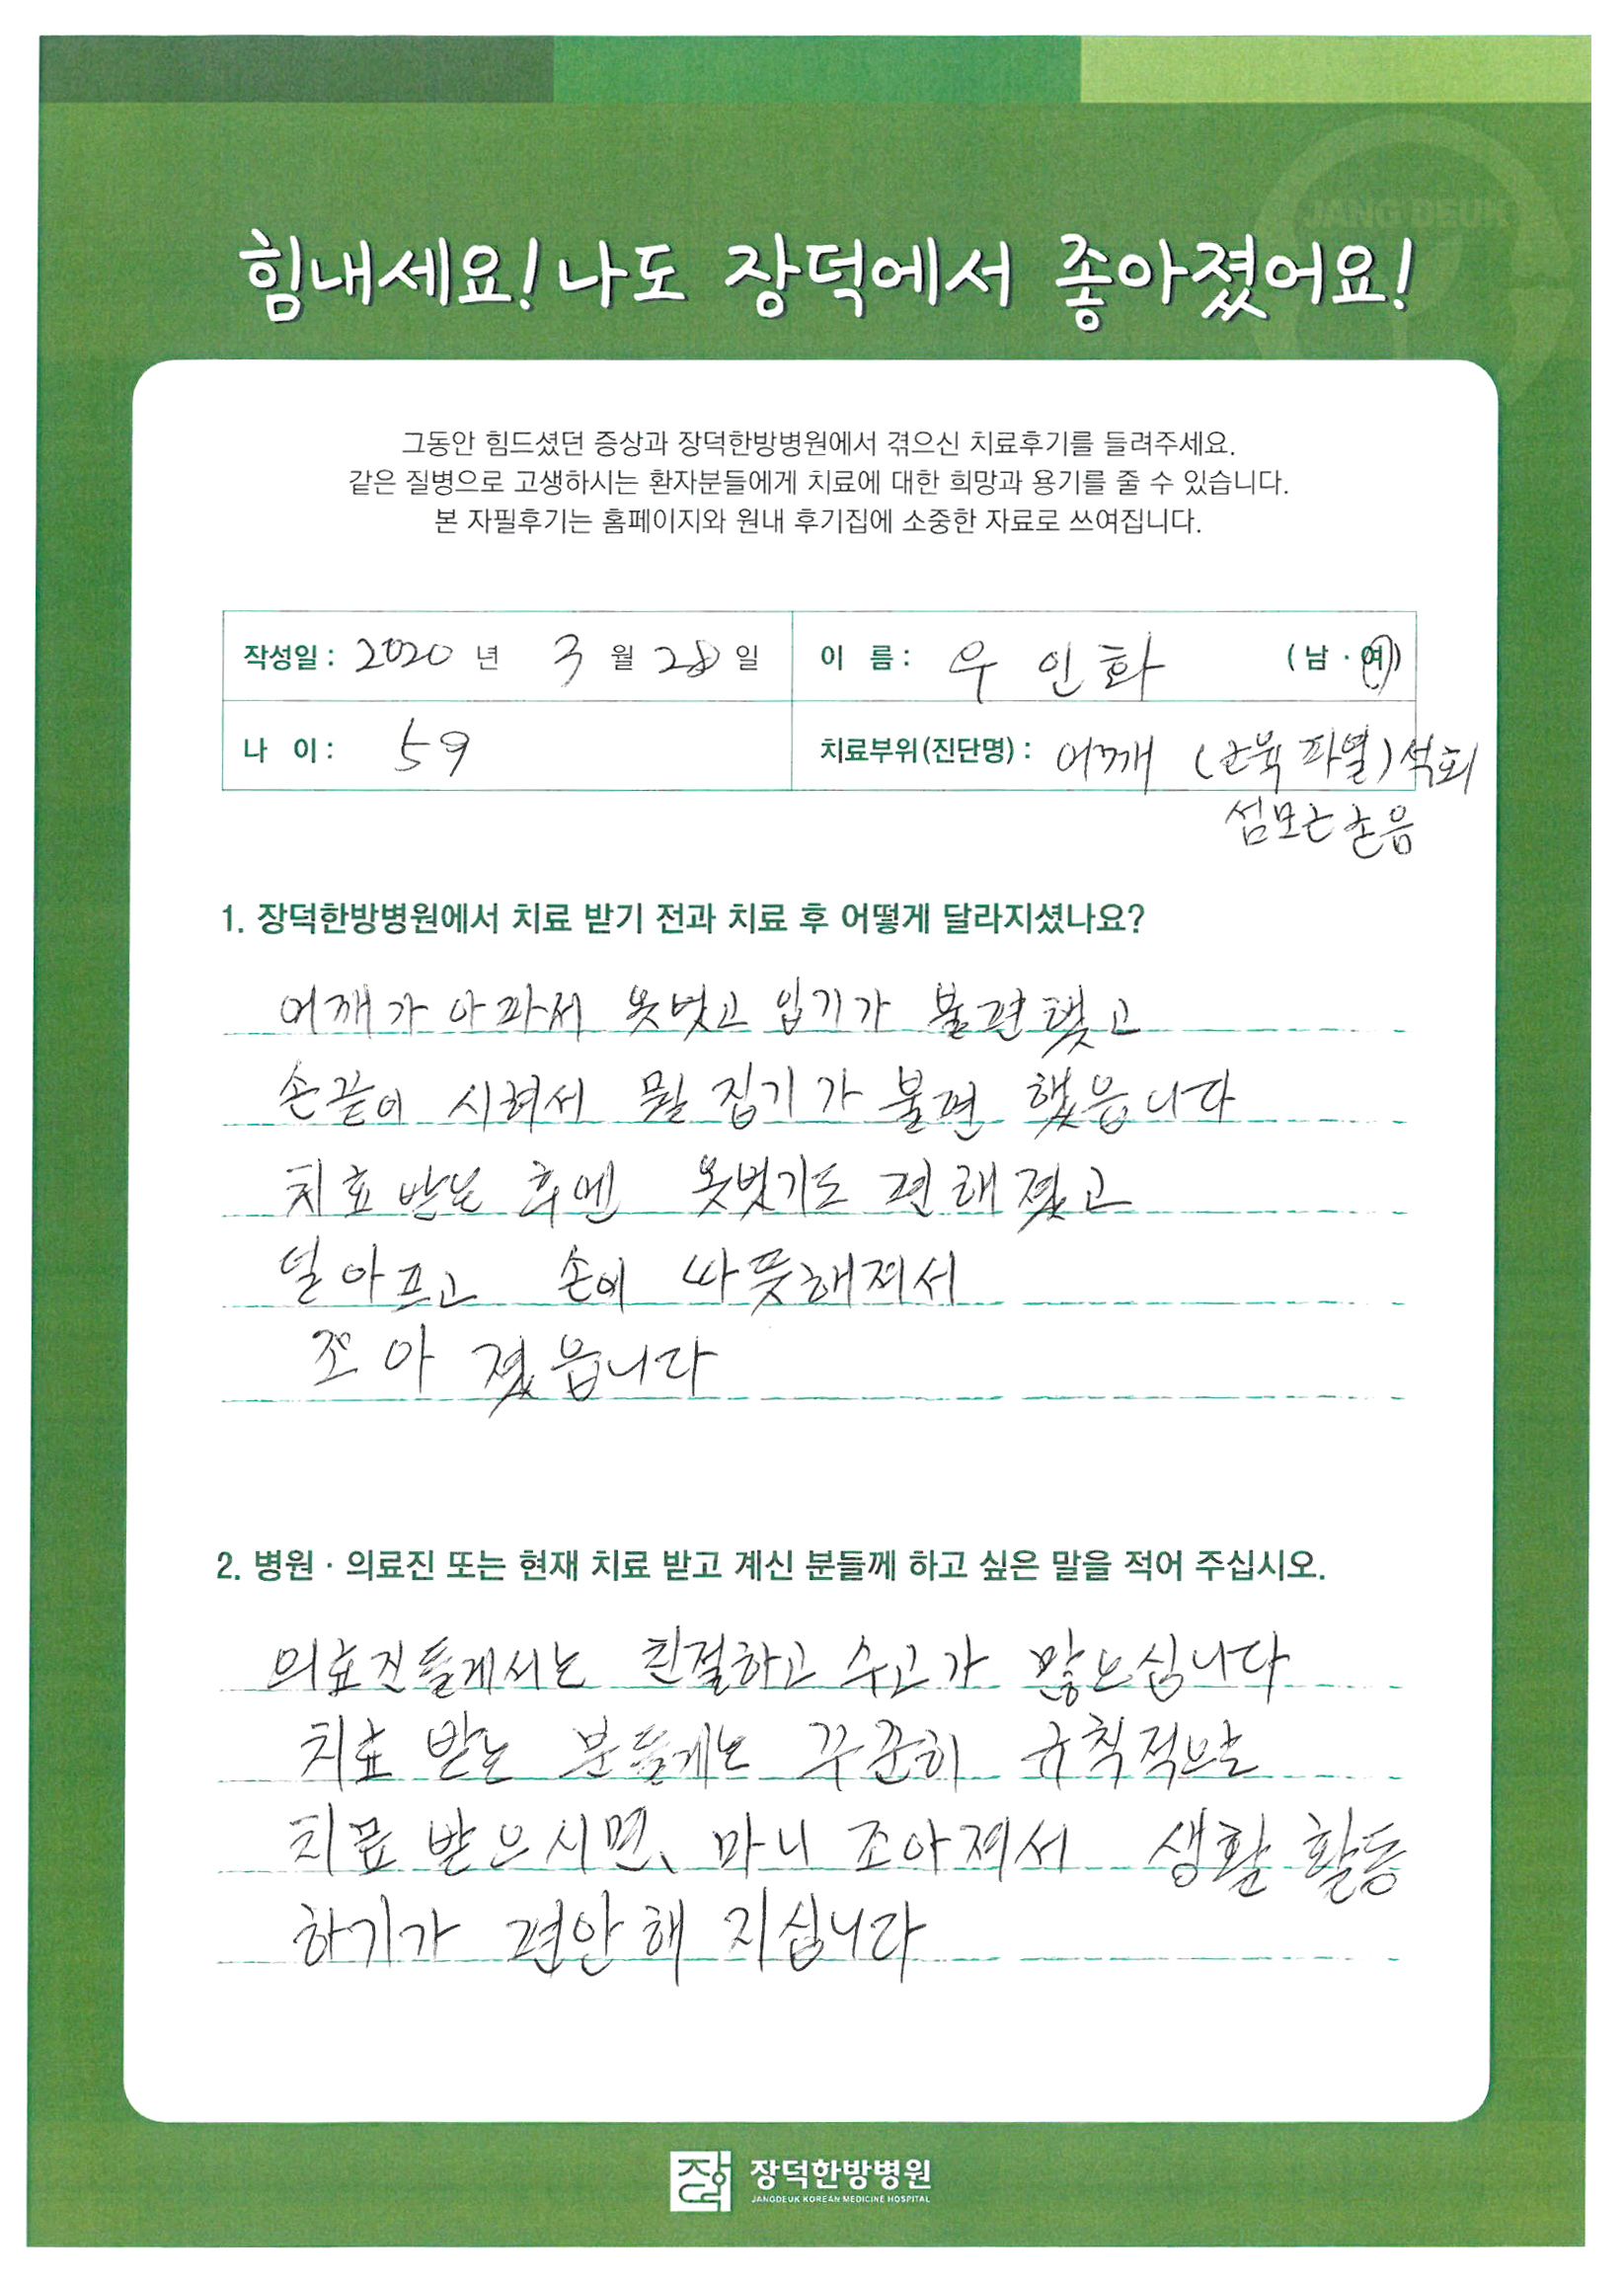 JANG DEUK
힘내세요! 나도 장덕에서 좋아졌어요!
그동안 힘드셨던 증상과 장덕한방병원에서 겪으신 치료후기를 들려주세요.
같은 질병으로 고생하시는 환자분들에게 치료에 대한 희망과 용기를 줄 수 있습니다.
본 자필후기는 홈페이지와 원내 후기집에 소중한 자료로 쓰여집니다.
작성일 : 2020 년 3 월 28 일 이 름 : 우인화 (남 · 여)
나 이 : 59 치료부위(진단명) : 어깨 (근육 파열) 석회
섬모근
1. 장덕한방병원에서 치료 받기 전과 치료 후 어떻게 달라지셨나요?
어깨가 아파서 옷벗고 입기가 불편했고
손끝이 시려서 뭘 집기가 불편 했읍니다
치료 받는 후엔 옷벗기도 편해졌고
덜 아프고 손이 따뜻해져서
조아 졌읍니다
2. 병원 · 의료진 또는 현재 치료 받고 계신 분들께 하고 싶은 말을 적어 주십시오.
의료진들게서는 친절하고 수고가 많으십니다
치료 받는 분들게는 꾸준히 규칙적으로
치료 받으시면, 마니 조아져서 생활 활동
하기가 편안해 지십니다
장덕한방병원
JANGDEUK KOREAN MEDICINE HOSPITAL